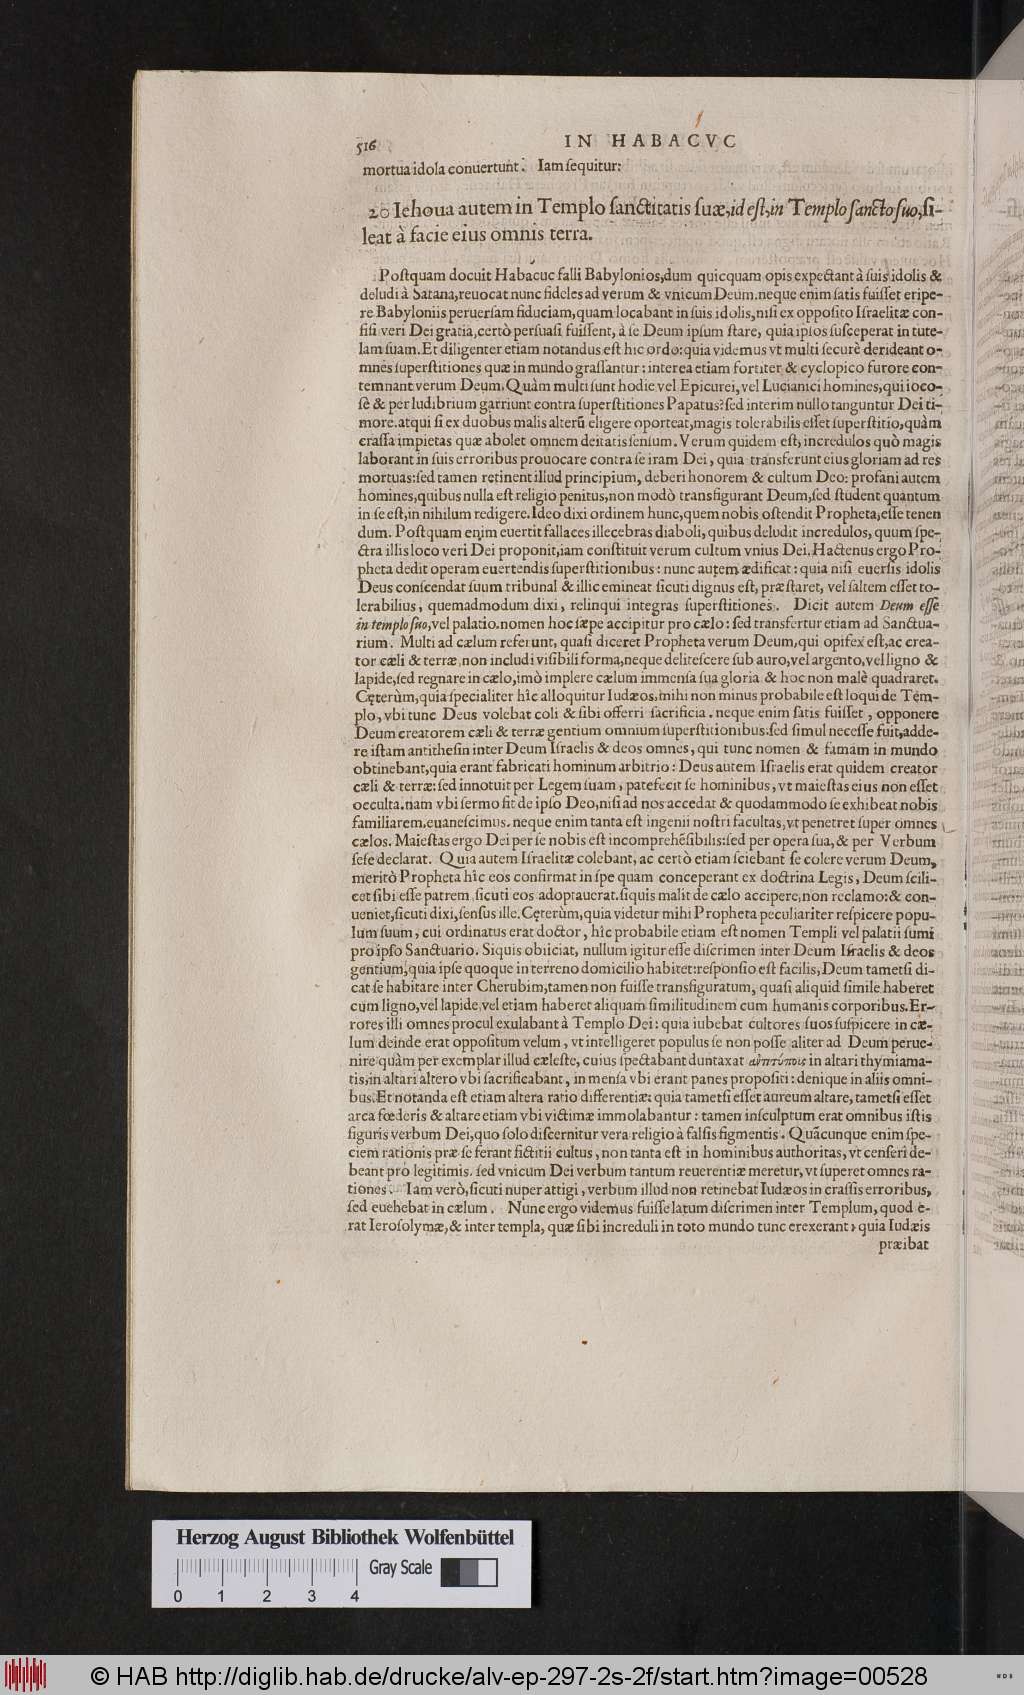 516
IN HABACVC
mortua idola conuertunt. Iam ſequitur:
20 Iehoua autem in Templo ſanctitatis ſuæ, id eſt, in Templo ſancto ſuo, ſi-
leat à facie eius omnis terra.
Poſtquam docuit Habacuc falli Babylonios, dum quicquam opis expectant à ſuis idolis &
deludi à Satana, reuocat nunc fideles ad verum & vnicum Deum. neque enim ſatis fuiſſet eripe-
re Babyloniis peruerſam fiduciam, quam locabant in ſuis idolis, niſi ex oppoſito Iſraelitæ con-
fiſi veri Dei gratia, certò perſuaſi fuiſſent, à ſe Deum ipſum ſtare, quia ipſos ſuſceperat in tute-
lam ſuam. Et diligenter etiam notandus eſt hic ordo: quia videmus vt multi ſecurè derideant o-
mnes ſuperſtitiones quæ in mundo graſſantur: interea etiam fortiter & cyclopico furore con-
temnant verum Deum. Quàm multi ſunt hodie vel Epicurei, vel Lucianici homines, qui ioco-
ſè & per ludibrium garriunt contra ſuperſtitiones Papatus? ſed interim nullo tanguntur Dei ti-
more. atqui ſi ex duobus malis alterũ eligere oporteat, magis tolerabilis eſſet ſuperſtitio, quàm
craſſa impietas quæ abolet omnem deitatis ſenſum. Verum quidem eſt, incredulos quò magis
laborant in ſuis erroribus prouocare contra ſe iram Dei, quia transferunt eius gloriam ad res
mortuas: ſed tamen retinent illud principium, deberi honorem & cultum Deo: profani autem
homines, quibus nulla eſt religio penitus, non modò transfigurant Deum, ſed ſtudent quantum
in ſe eſt, in nihilum redigere. Ideo dixi ordinem hunc, quem nobis oſtendit Propheta, eſſe tenen
dum. Poſtquam enim euertit fallaces illecebras diaboli, quibus deludit incredulos, quum ſpe-
ctra illis loco veri Dei proponit, iam conſtituit verum cultum vnius Dei. Hactenus ergo Pro-
pheta dedit operam euertendis ſuperſtitionibus: nunc autem ædificat: quia niſi euerſis idolis
Deus conſcendat ſuum tribunal & illic emineat ſicuti dignus eſt, præſtaret, vel ſaltem eſſet to-
lerabilius, quemadmodum dixi, relinqui integras ſuperſtitiones. Dicit autem Deum eſſe
in templo ſuo, vel palatio. nomen hoc ſæpe accipitur pro cælo: ſed transfertur etiam ad Sanctua-
rium. Multi ad cælum referunt, quaſi diceret Propheta verum Deum, qui opifex eſt, ac crea-
tor cæli & terræ, non includi viſibili forma, neque deliteſcere ſub auro, vel argento, vel ligno &
lapide, ſed regnare in cælo, imò implere cælum immenſa ſua gloria & hoc non malè quadraret.
Cęterùm, quia ſpecialiter hîc alloquitur Iudæos, mihi non minus probabile eſt loqui de Tem-
plo, vbi tunc Deus volebat coli & ſibi offerri ſacrificia. neque enim ſatis fuiſſet, opponere
Deum creatorem cæli & terræ gentium omnium ſuperſtitionibus: ſed ſimul neceſſe fuit, adde-
re iſtam antitheſin inter Deum Iſraelis & deos omnes, qui tunc nomen & famam in mundo
obtinebant, quia erant fabricati hominum arbitrio: Deus autem Iſraelis erat quidem creator
cæli & terræ: ſed innotuit per Legem ſuam, patefecit ſe hominibus, vt maieſtas eius non eſſet
occulta. nam vbi ſermo fit de ipſo Deo, niſi ad nos accedat & quodammodo ſe exhibeat nobis
familiarem, euaneſcimus. neque enim tanta eſt ingenii noſtri facultas, vt penetret ſuper omnes
cælos. Maieſtas ergo Dei per ſe nobis eſt incomprehẽſibilis: ſed per opera ſua, & per Verbum
ſeſe declarat. Quia autem Iſraelitæ colebant, ac certò etiam ſciebant ſe colere verum Deum,
meritò Propheta hîc eos confirmat in ſpe quam conceperant ex doctrina Legis, Deum ſcili-
cet ſibi eſſe patrem, ſicuti eos adoptauerat. ſiquis malit de cælo accipere, non reclamo: & con-
ueniet, ſicuti dixi, ſenſus ille. Cęterùm, quia videtur mihi Propheta peculiariter reſpicere popu-
lum ſuum, cui ordinatus erat doctor, hîc probabile etiam eſt nomen Templi vel palatii ſumi
pro ipſo Sanctuario. Siquis obiiciat, nullum igitur eſſe diſcrimen inter Deum Iſraelis & deos
gentium, quia ipſe quoque in terreno domicilio habitet: reſponſio eſt facilis, Deum tametſi di-
cat ſe habitare inter Cherubim, tamen non fuiſſe transfiguratum, quaſi aliquid ſimile haberet
cum ligno, vel lapide, vel etiam haberet aliquam ſimilitudinem cum humanis corporibus. Er-
rores illi omnes procul exulabant à Templo Dei: quia iubebat cultores ſuos ſuſpicere in cæ-
lum deinde erat oppoſitum velum, vt intelligeret populus ſe non poſſe aliter ad Deum perue-
nire quàm per exemplar illud cæleſte, cuius ſpectabant duntaxat ἀντιτύπους in altari thymiama-
tis, in altari altero vbi ſacrificabant, in menſa vbi erant panes propoſiti: denique in aliis omni-
bus. Et notanda eſt etiam altera ratio differentiæ: quia tametſi eſſet aureum altare, tametſi eſſet
arca fœderis & altare etiam vbi victimæ immolabantur: tamen inſculptum erat omnibus iſtis
figuris verbum Dei, quo ſolo diſcernitur vera religio à falſis figmentis. Quãcunque enim ſpe-
ciem rationis præ ſe ferant fictitii cultus, non tanta eſt in hominibus authoritas, vt cenſeri de-
beant pro legitimis. ſed vnicum Dei verbum tantum reuerentiæ meretur, vt ſuperet omnes ra-
tiones. Iam verò, ſicuti nuper attigi, verbum illud non retinebat Iudæos in craſſis erroribus,
ſed euehebat in cælum. Nunc ergo videmus fuiſſe latum diſcrimen inter Templum, quod e-
rat Ieroſolymæ, & inter templa, quæ ſibi increduli in toto mundo tunc erexerant, quia Iudæis
præibat
Herzog August Bibliothek Wolfenbüttel
Gray Scale
0 1 2 3 4
© HAB http://diglib.hab.de/drucke/alv-ep-297-2s-2f/start.htm?image=00528